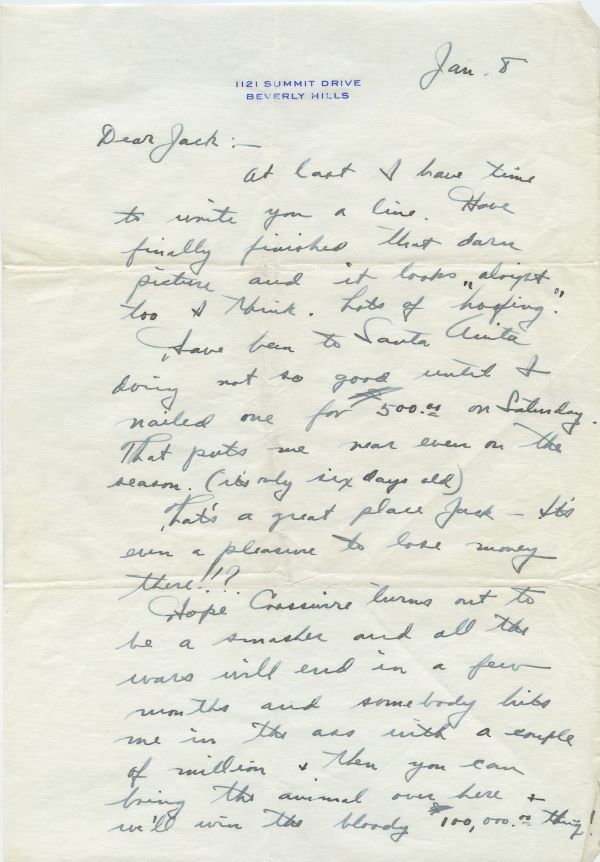 Jan. 8
1121 SUMMIT DRIVE
BEVERLY HILLS
Dear Jack :—
At last I have time
to write you a line. Have
finally finished that darn
picture and it looks "alright"
too I think. Lots of hoofing.
Have been to Santa Anita
doing not so good until I
nailed one for $500.00 on Saturday.
That puts me near even on the
season. (it's only six days old)
That's a great place Jack — It's
even a pleasure to lose money
there!!?
Hope Crosswire turns out to
be a smasher and all the
wars will end in a few
months and somebody hits
me in the ass with a couple
of million & then you can
bring the animal over here &
we'll win the bloody $100,000.00 thing!